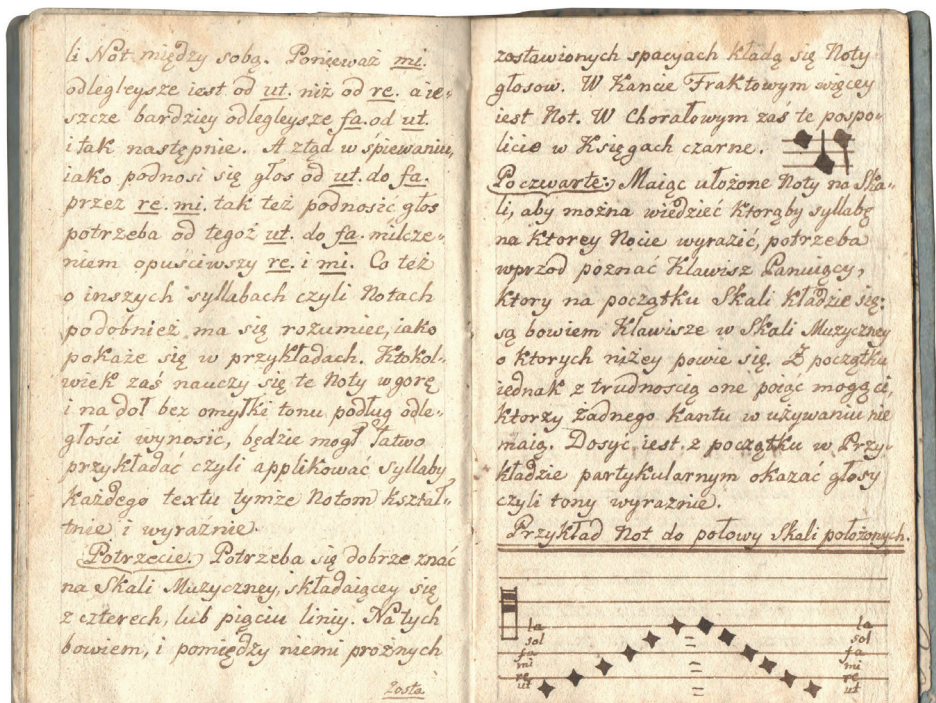 li Not między sobą. Ponieważ mi.
odlegleysze iest od ut. niż od re. a ie-
szcze bardziey odlegleysze fa. od ut.
i tak następnie. A ztąd w śpiewaniu,
iako podnosi się głos od ut. do fa.
przez re. mi. tak też podnosić głos
potrzeba od tegoż ut. do fa. milcze-
niem opuściwszy re. i mi. Co też
o inszych syllabach czyli Notach
podobnież ma się rozumieć, iako
pokaże się w przykładach. Ktokol-
wiek zaś nauczy się te Noty w gorę
i na doł bez omyłki tonu podług odle-
głości wynosić, będzie mogł łatwo
przykładać czyli applikować syllaby
każdego textu tymże Notom kształ-
tnie i wyraźnie.
Potrzecie. Potrzeba się dobrze znać
na Skali Muzyczney, składaiącey się
z czterech, lub pięciu liniy. Na tych
bowiem, i pomiędzy niemi prożnych
zosta
zostawionych spacyjach kładą się Noty
głosow. W Kancie Fraktowym więcey
iest Not. W Chorałowym zaś te pospo-
licie w Księgach czarne.
Poczwarte: Maiąc ułożone Noty na Ska-
li, aby można wiedzieć ktorąby syllabę
na ktorey Nocie wyrazić, potrzeba
wprzod poznać Klawisz Panuiący,
ktory na początku Skali kładzie się:
są bowiem Klawisze w Skali Muzyczney
o ktorych niżey powie się. Z początku
iednak z trudnością one poiąc mogą ci,
ktorzy żadnego kantu w używaniu nie
maią. Dosyć iest z początku w Przy-
kładzie partykularnym okazać głosy
czyli tony wyraźnie.
Przykład Not do połowy Skali położonych.
la la
sol sol
fa fa
mi mi
re re
ut ut